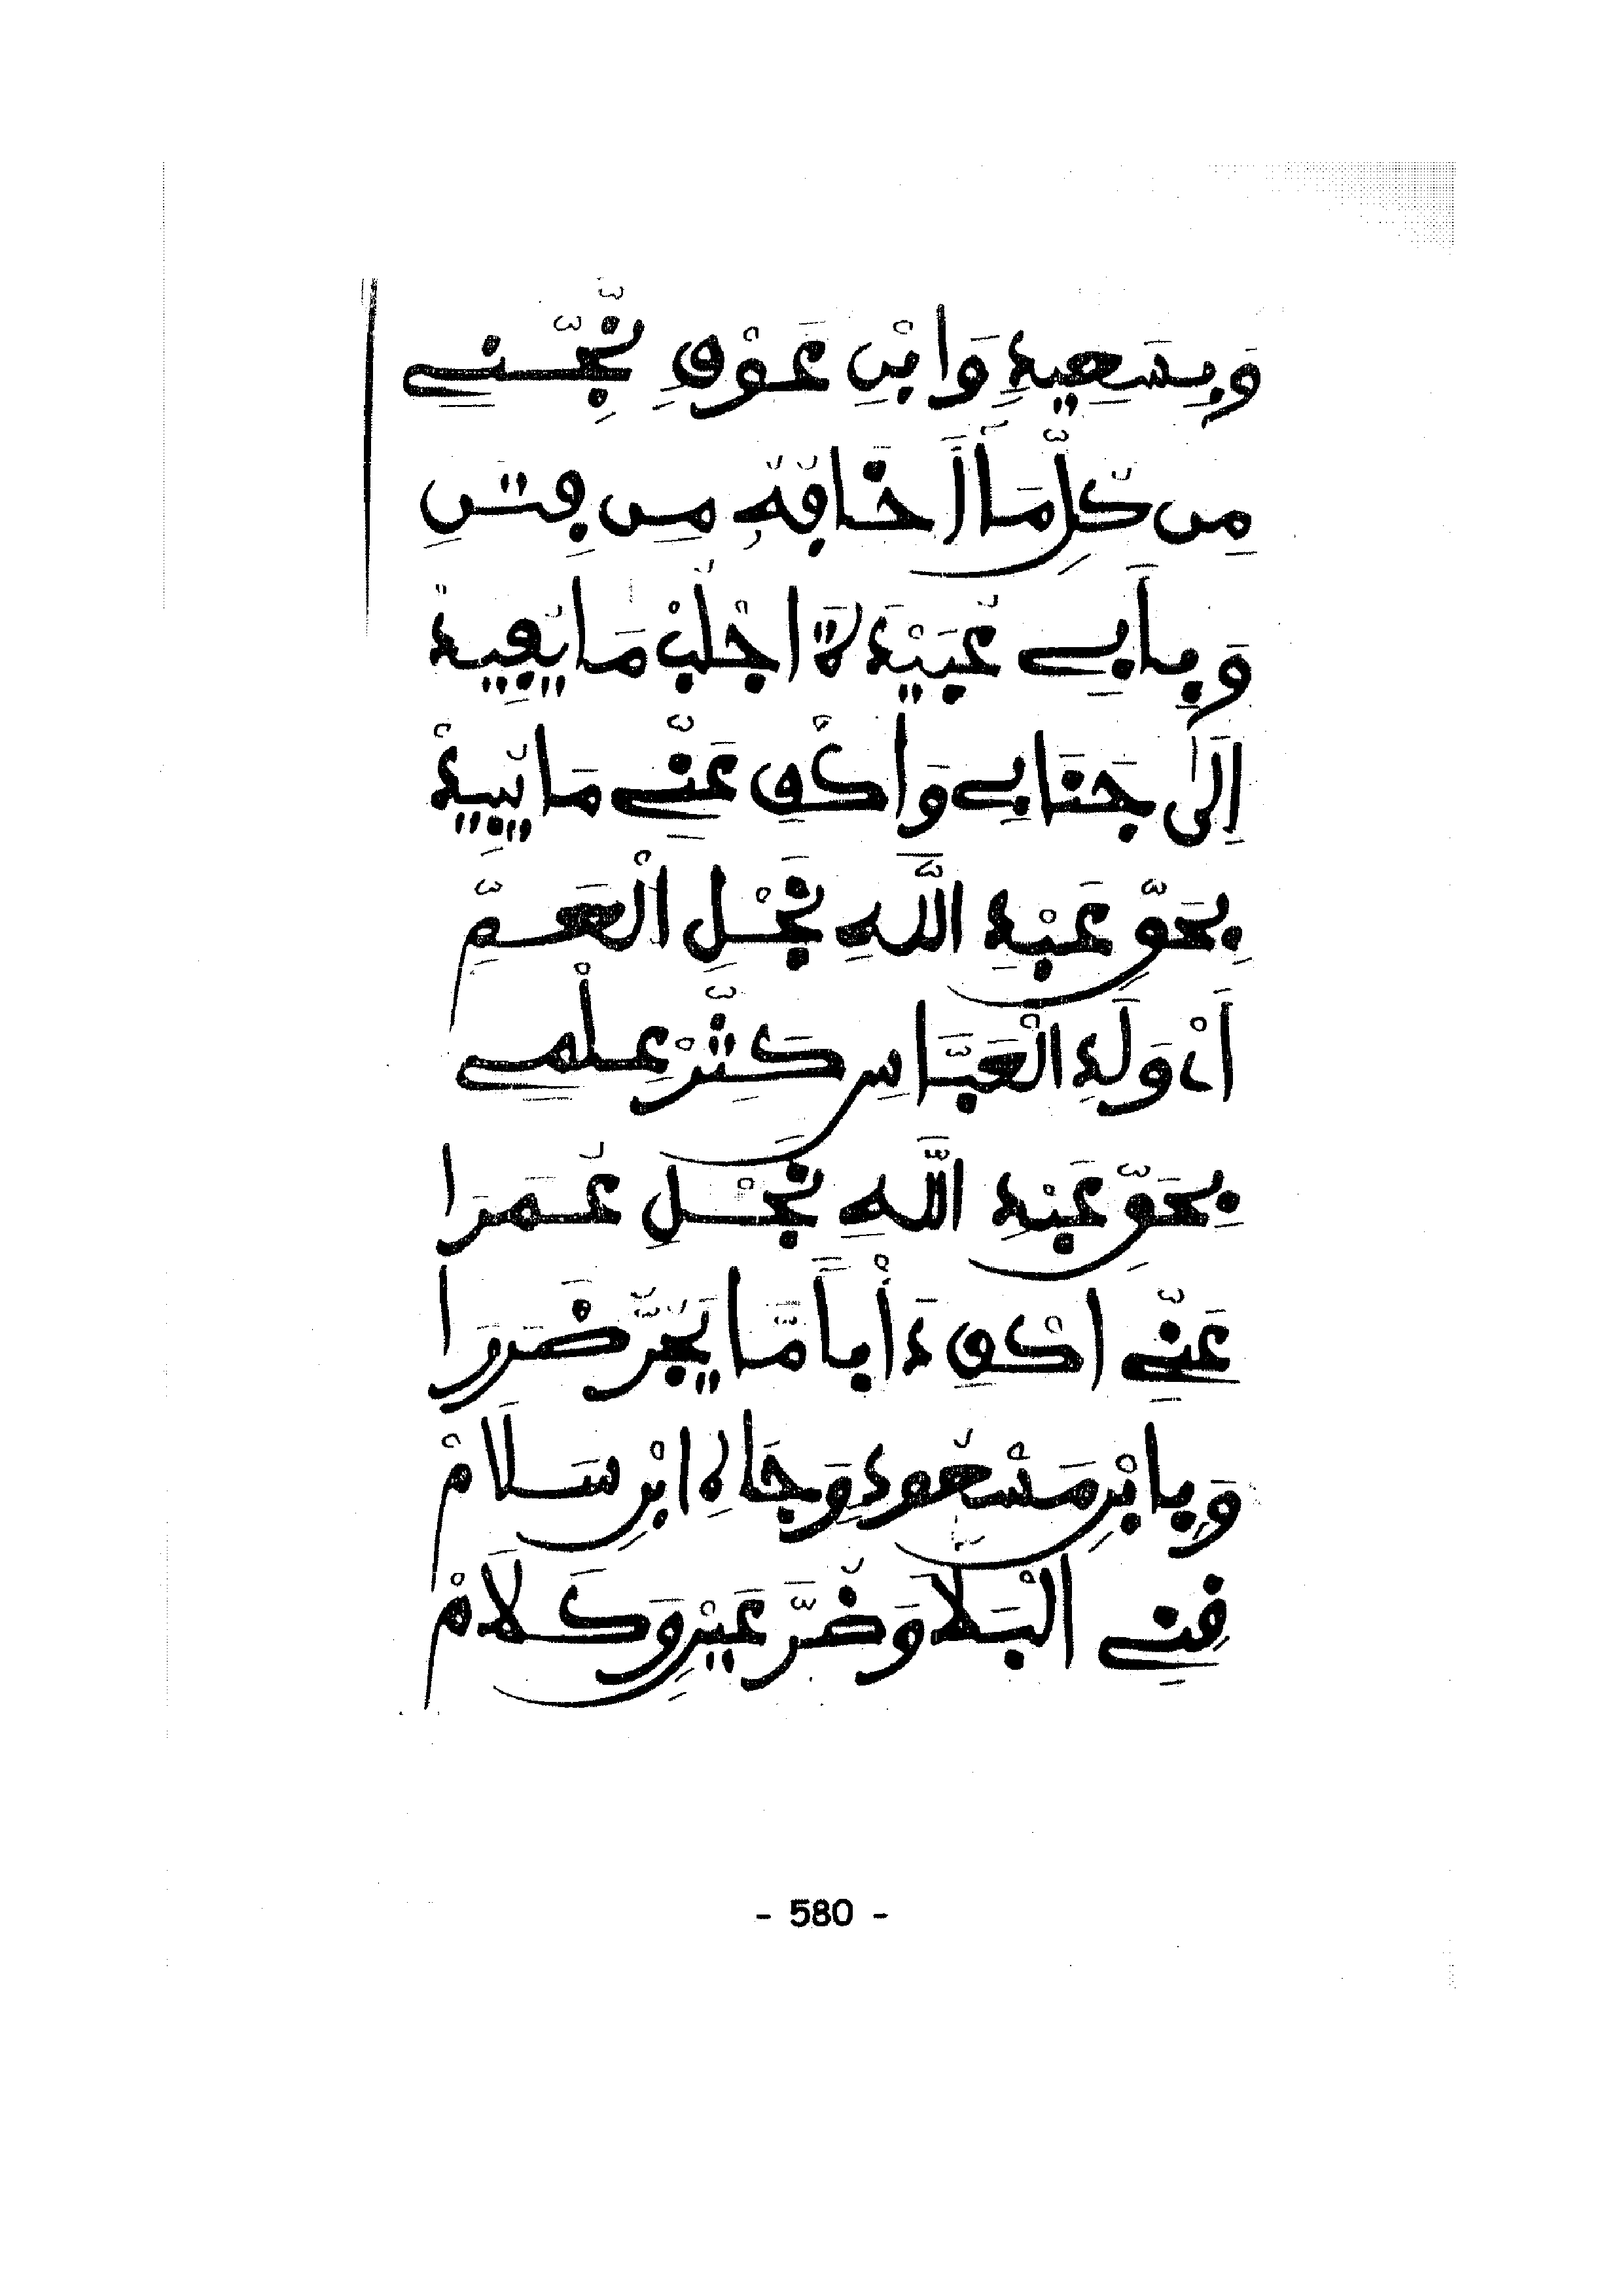 وَبِسَعِيدِ وَابْنِ عَوْفٍ نَجِّنِي
مِن كُلِّ مَا أَخَافُهُ مِن فِتَنِ
وَبِأَبِي عُبَيْدَةَ اجْلُبْ مَا يُفِيدْ
إِلَى جَنَابِي وَاكْفِ عَنِّي مَا يُبِيدْ
بِحَقِّ عَبْدِ اللَّهِ نَجْلِ الْعَمِّ
أَىْ وَلَدِ الْعَبَّاسِ كَثِّرْ عِلْمِي
بِحَقِّ عَبْدِ اللَّهِ نَجْلِ عُمَرَا
عَنِّي اكْفِ دَأْباً مَّا يَجُرُّ ضَرَرَا
وَبِابْنِ مَسْعُودٍ وَجَاهِ ابْنِ سَلَامْ
قِنِي الْبَلَا وَضُرَّ عَيْنٍ وَكَلَامْ
- 580 -